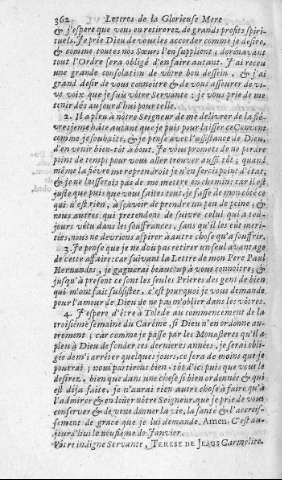 362 Lettres de la Glorieuse Mere
& j'espere que vous en retirerez de grands profits spiri-
tuels. Je prie Dieu de vous les accorder comme je desire,
& comme toutes nos Sœurs l'en supplient, dorenavant
tout l'Ordre sera obligé d'en faire autant. J'ai receu
une grande consolation de vôtre bon dessein, & j'ai
grand desir de vous connoître & de vous asseurer de vi-
ve voix que je suis vôtre Servante: je vous prie de me
tenir dés aujourd'hui pour telle.
2. Il a pleu à nôtre Seigneur de me delivrer de la fié-
vre; j'ay me hâte autant que je puis pour laisser ce Couvent
comme je souhaite, & je pense avec l'assistance de Dieu,
d'en venir bien-tôt à bout. Je vous promets de ne perdre
point de temps pour vous aller trouver aussi-tôt; quand
même la fiévre me reprendroit je n'en serois point d'état,
& je ne laisserois pas de me mettre en chemin: car il est
juste que puis que vous faites tout, je fasse de mon côté ce
qui n'est rien, à sçavoir de prendre un peu de peine; &
nous autres qui pretendons de suivre celui qui a toû-
jours vêcu dans les souffrances, sans qu'il les eut meri-
tées, nous ne devrions aspirer à autre chose qu'à souffrir.
3. Je pense que je ne dois pas retirer un seul avantage
de cette affaire: car suivant la Lettre de mon Pere Paul
Hernandez, je gagnerai beaucoup à vous connoître; &
jusqu'à present ce sont les seules Prieres des gens de bien
qui m'ont fait subsister. c'est pourquoi je vous demande
pour l'amour de Dieu de ne pas m'oublier dans les vôtres.
4. J'espere d'être à Tolede au commencement de la
troisiéme semaine du Carême, si Dieu n'en ordonne au-
trement; car comme je passe par les Monasteres qu'il a
pleu à Dieu de fonder ces dernieres années, je serai obli-
gée de m'y arrêter quelques jours, ce sera de moins que je
pourrai; nous partirons bien-tôt d'ici, puis que vous le
desirez, bien que dans une chose si bien ordonnée & qui
est déja faite, je n'aurai rien autre chose à faire, qu'à
l'admirer & en loüer nôtre Seigneur, que je prie de vous
conserver & de vous donner la vie, la santé & l'accrois-
sement de grace que je lui demande. Amen. C'est au-
jourd'hui le neufiéme de Janvier.
Vôtre indigne Servante, TERESE DE JESUS Carmelite.